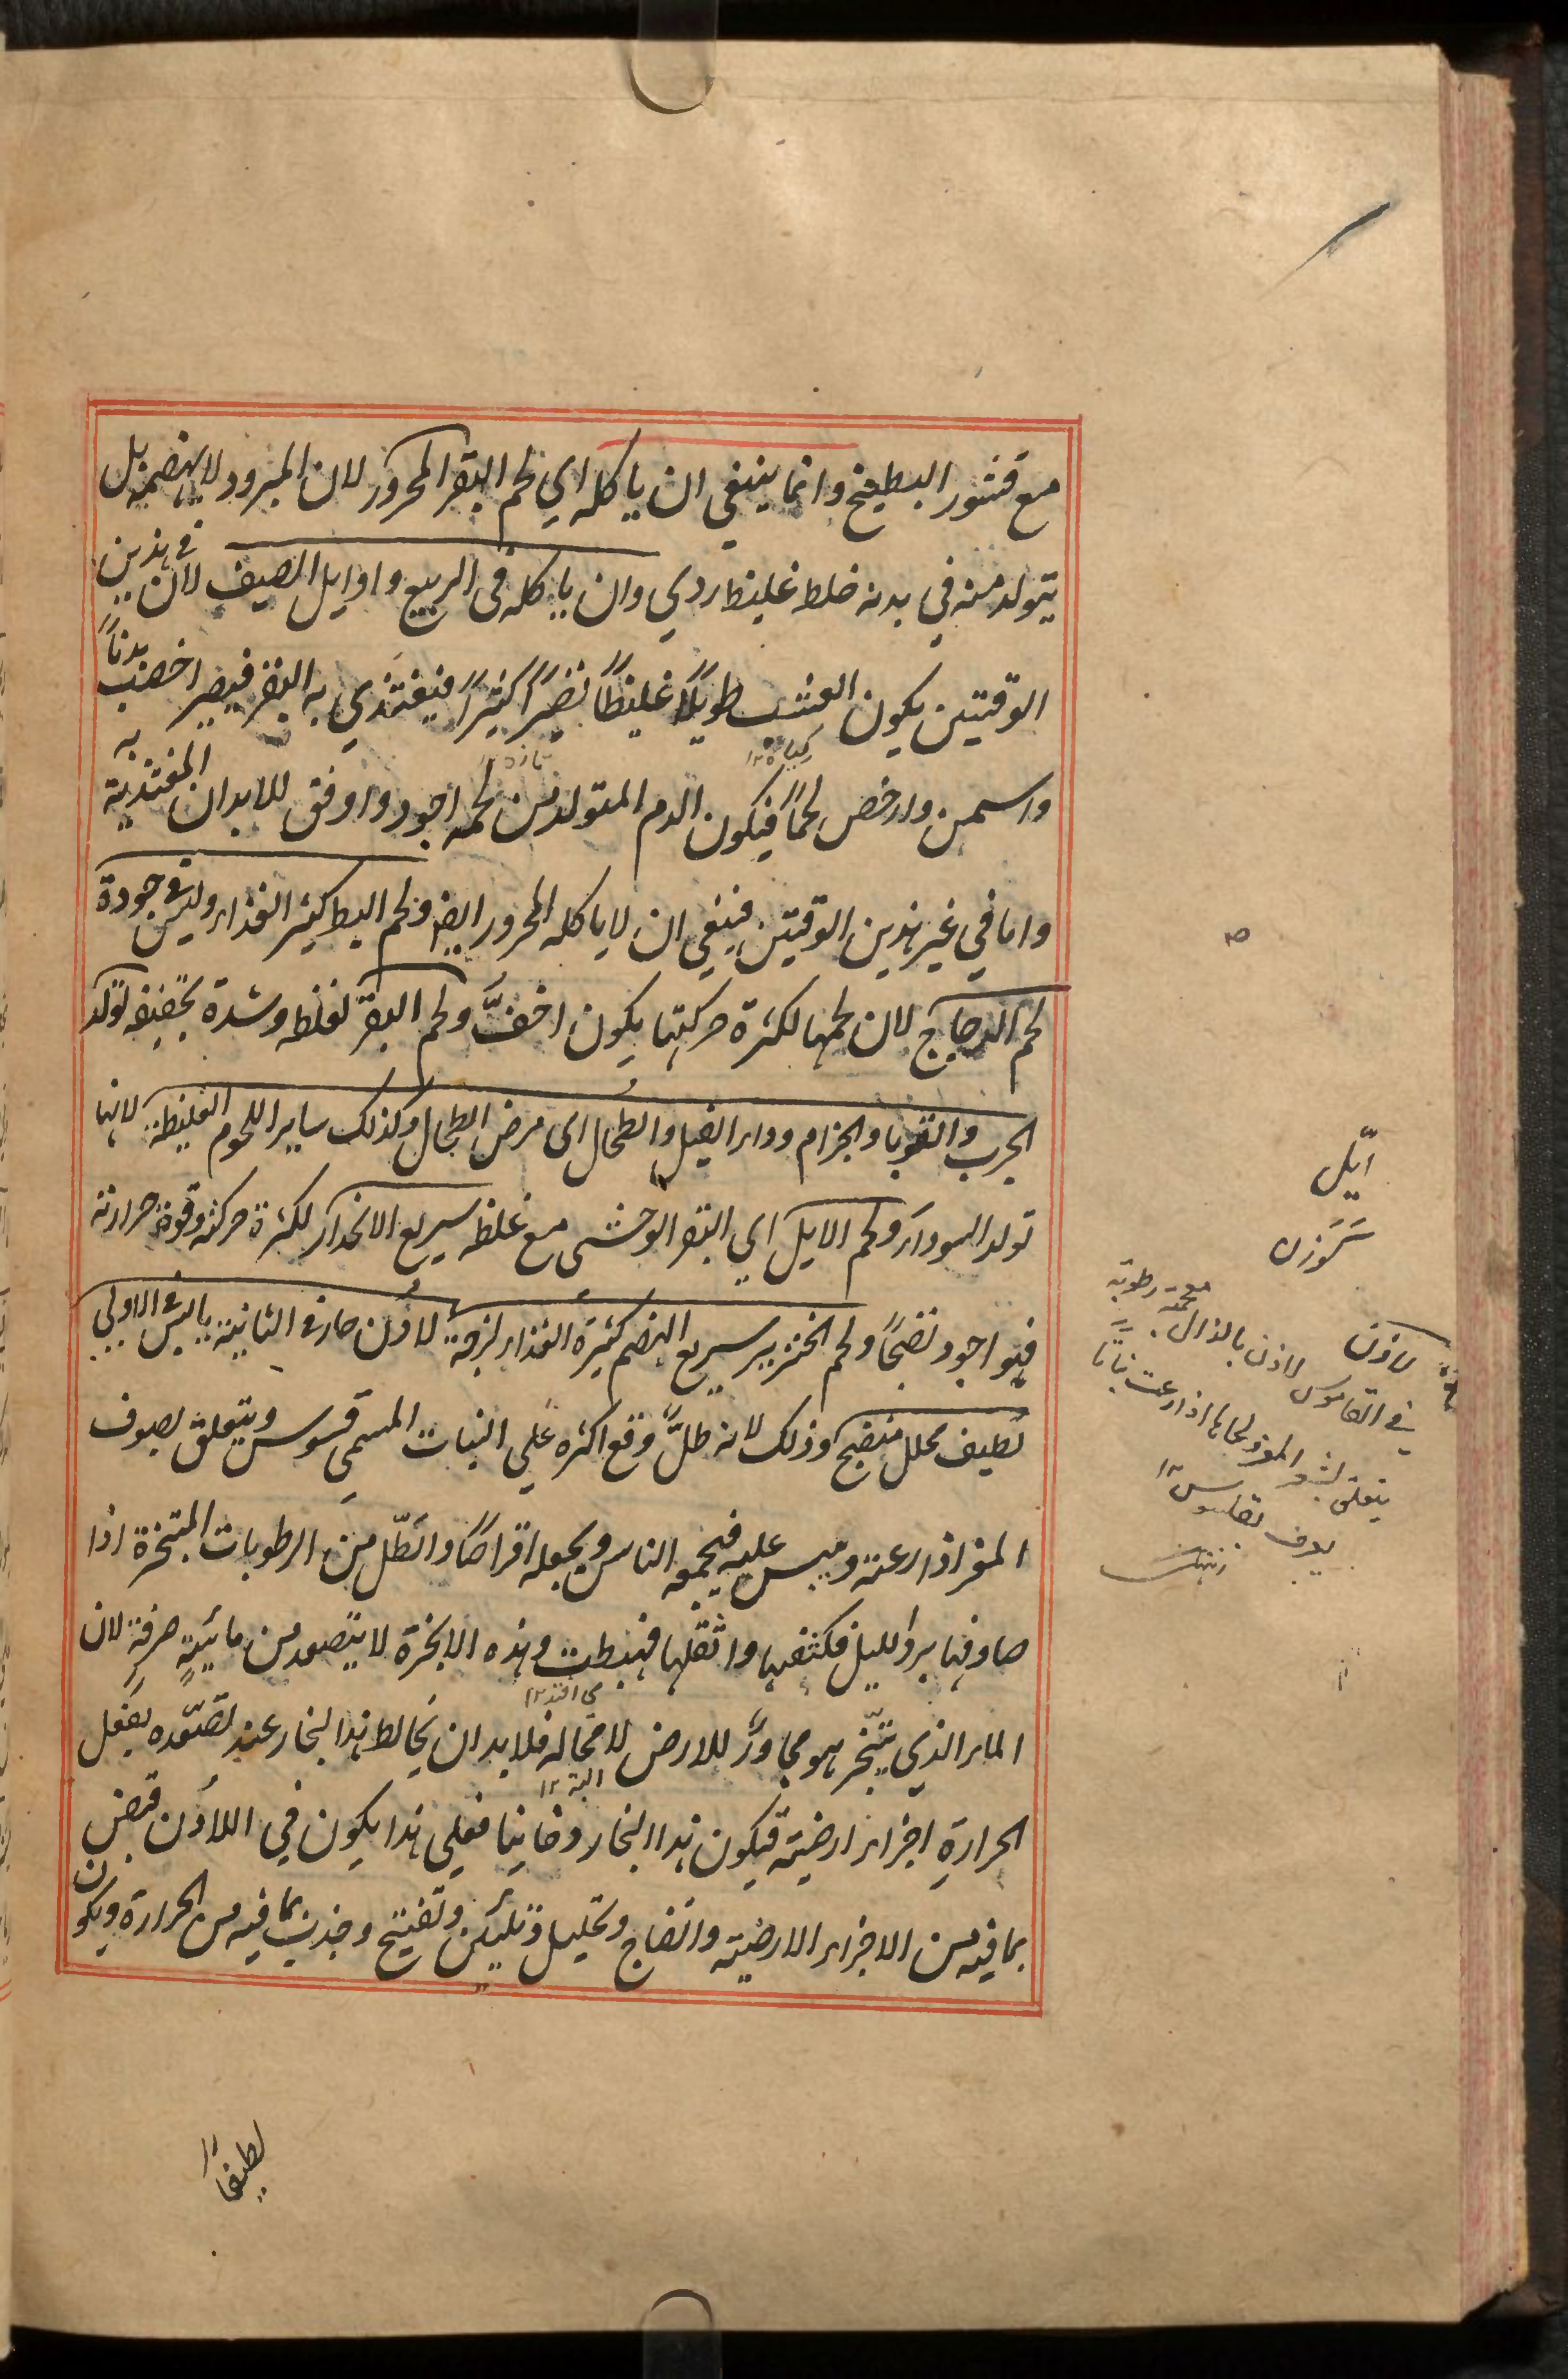 مع قشور البطيخ وانما ينبغي ان ياكله اي لحم البقر المحرور لان المبرود لا يهضمه بل
يتولد منه في بدنه خلط غليظ ردي وان ياكله في الربيع واوايل الصيف لان في هذين
الوقتين يكون العشب طويلًا غليظًا نضيرًا كثيرًا فيغتذي به البقر فيصير اخصب بدنًا
واسمن وارخص لحمًا فيكون الدم المتولد من لحمه اجود واوفق للابدان المغتذية به
واما في غير هذين الوقتين فينبغي ان لا ياكله المحرور ايضا ولحم البط كثير الغذاء وليس في جودة
لحم الدجاج لان لحمها لكثرة حركتها يكون اخفَّ ولحم البقر لغلظه وشدة تجفيفه تولد
الجرب والقوبا والجزام وداء الفيل والطحال اى مرض الطحال وكذلك ساير اللحوم الغليظة لانها
تولد السوداء ولحم الايل اي البقر الوحشى مع غلظه سريع الانحدار لكثرة حركته وقوة حرارته
فهو اجود نضجًا ولحم الخنزير سريع الهضم كثيرة الغذاء لزجة لاذن حار في الثانية يابس في الاولي
لطيف محلل منضج وذلك لانه طلٌّ وقع اكثره على النبات المسمى قسوس ويتعلق بصوف
المعز اذا رعته ويبس عليه فيجمعه الناس ويجعله اقراصًا والطّل من الرطوبات المتبخرة اذا
صادفها برد الليل فكثفها واثقلها فهبطت وهذه الابخرة لا يتصعد من مائيةٍ صرفةٍ لان
الماء الذي يتبّخر هو مجاورٌ للارض لا محالة فلا بد ان يخالط هذا البخار عند تصعّده بفعل
الحرارةِ اجزاء ارضية فيكون هذا البخار دخانيا فعلي هذا يكون في اللاذن قبض
بما فيه من الاجزاء الارضية وانضاج وتحليل وتليين وتفتيح وجذب بما فيه من الحرارة ويكون
لطيفًا
ايّل
گوزن
لاذن
في القاموس لاذن بالذال معجمة رطوبة
يتعلق بشعر المعز ولحاها اذا رعت نباتا
يعرف بقلسوس ١٢